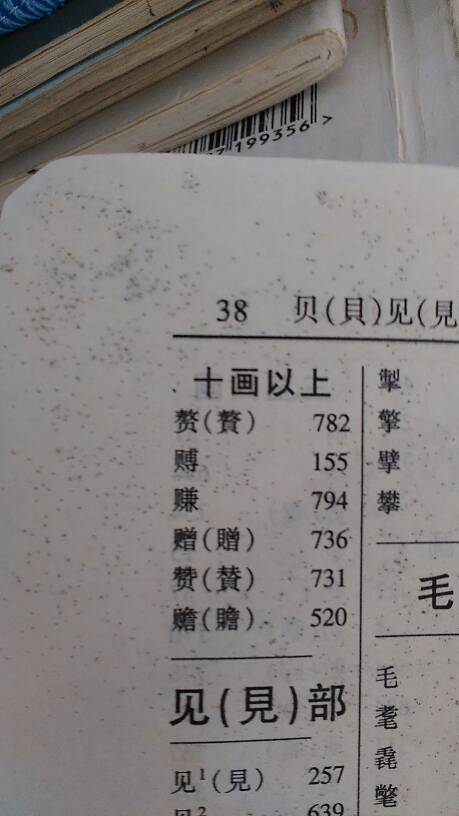 199356 >
38 贝(貝)见(見
十画以上
赘(贅) 782
赙 155
赚 794
赠(贈) 736
赞(賛) 731
赡(贍) 520
见(見)部
见¹(見) 257
见² 639
掣
擎
擘
攀
毛
毛
耄
毳
氅